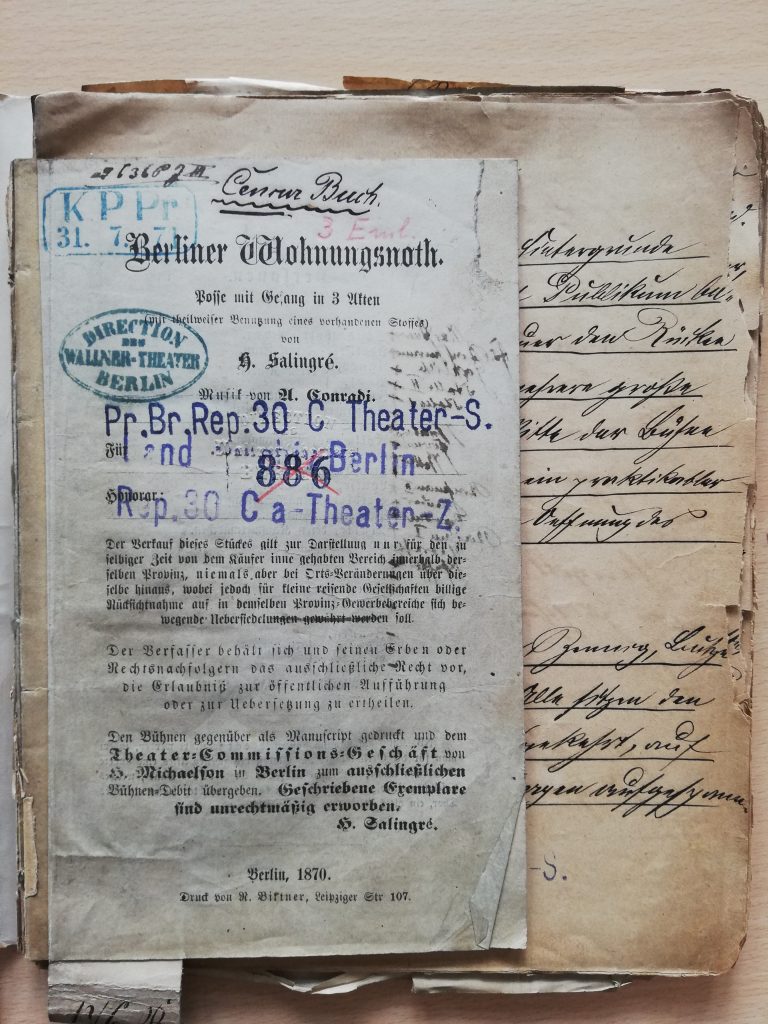 Censur Buch.
K P Pr
31. 7. 71
3 Exml.
Berliner Wohnungsnoth.
Posse mit Gesang in 3 Akten
(mit theilweiser Benutzung eines vorhandenen Stoffes)
von
H. Salingré.
DIRECTION
DES
WALLNER-THEATER
BERLIN
Musik von A. Conradi.
Pr.Br.Rep.30 C Theater-S.
Für
886 Berlin
Honorar:
Rep.30 C a-Theater-Z.
Der Verkauf dieses Stückes gilt zur Darstellung nur für den zu
selbiger Zeit von dem Käufer inne gehabten Bereich innerhalb der-
selben Provinz, niemals aber bei Orts-Veränderungen über die-
selbe hinaus, wobei jedoch für kleine reisende Gesellschaften billige
Rücksichtnahme auf in demselben Provinz-Gewerbebereiche sich be-
wegende Uebersiedelungen gewährt werden soll.
Der Verfasser behält sich und seinen Erben oder
Rechtsnachfolgern das ausschließliche Recht vor,
die Erlaubniß zur öffentlichen Aufführung
oder zur Uebersetzung zu ertheilen.
Den Bühnen gegenüber als Manuscript gedruckt und dem
Theater-Commissions-Geschäft von
H. Michaelson in Berlin zum ausschließlichen
Bühnen-Debit übergeben. Geschriebene Exemplare
sind unrechtmäßig erworben.
H. Salingré.
Berlin, 1870.
Druck von R. Bittner, Leipziger Str 107.
Hintergrunde
Publikum
den Rücken
mehrere große
Mitte der Bühne
ein praktikabler
Oeffnung des
Alle sitzen den
gekehrt, auf
-S.